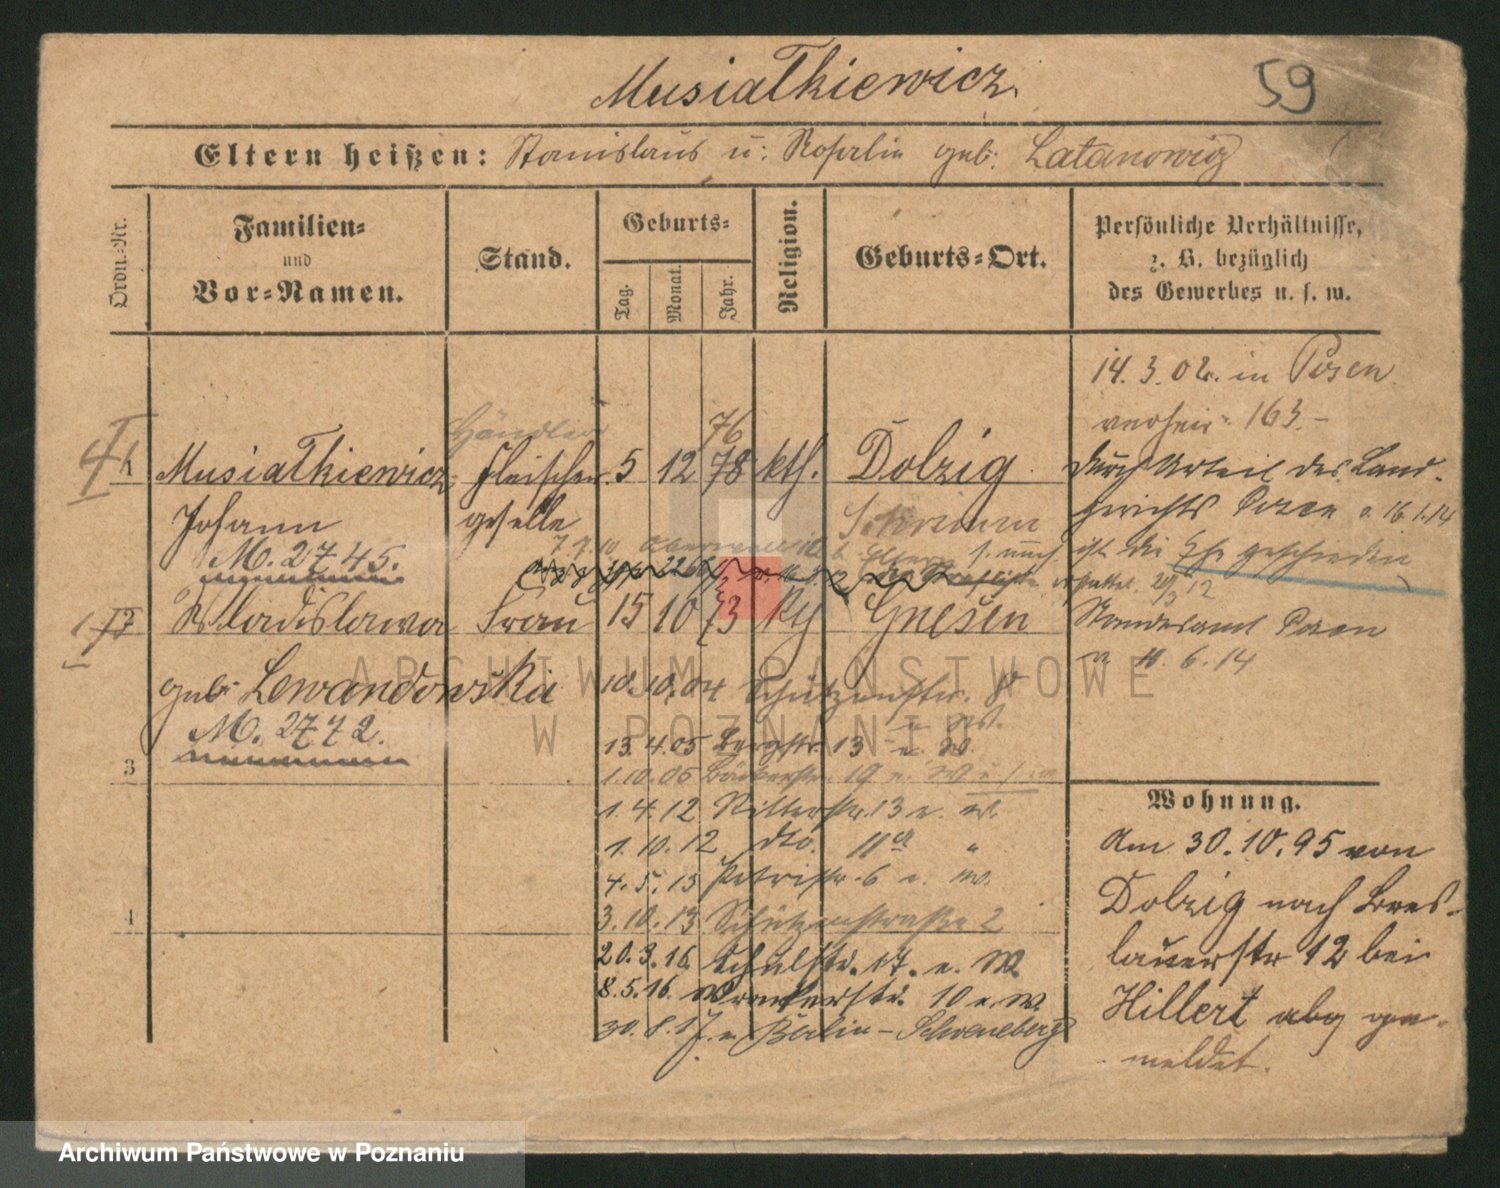 Musiatkiewicz.
59
Eltern heißen: Stanislaus u: Rosalie geb: Latanowicz
Ordn.-Nr.
Familien-
und
Vor-Namen.
Stand.
Geburts-
Tag.
Monat.
Jahr.
Religion.
Geburts-Ort.
Persönliche Verhältnisse,
z. B. bezüglich
des Gewerbes u. s. w.
14. 3. 02. in Posen
verheir: 163.-
Händler
76
Musiatkiewicz Fleischer 5 12 78 kth. Dolzig
Johann geselle Schrimm
M. 2745.
durch Urteil des Land-
gerichts Posen v. 16.1.14
ist die Ehe geschieden
Standesamt Posen
v. 11. 6. 14
Wladislawa Frau 15 10 73 Gnesen
geb. Lewandowska
M. 2772.
3
4
10. 10. 04 Schützenstr. 8
13. 4. 05 Bergstr. 13 n. W.
1. 10. 05 Bäckerstr. 19 n. W
1. 4. 12 Ritterstr. 13 n. W.
1. 10. 12 dto. 11a "
4. 5. 13 Petristr. 6 n. W.
3. 10. 13 Schützenstraße 2
20. 3. 16. Schulstr. 17. n. W.
8. 5. 16. Wronkerstr. 10 n. W.
30. 8. 17. n. Berlin - Schöneberg
Wohnung.
Am 30. 10. 95 von
Dolzig nach Bres-
lauerstr 12 bei
Hillert abg ge-
meldet.
ARCHIWUM PAŃSTWOWE
W POZNANIU
Archiwum Państwowe w Poznaniu